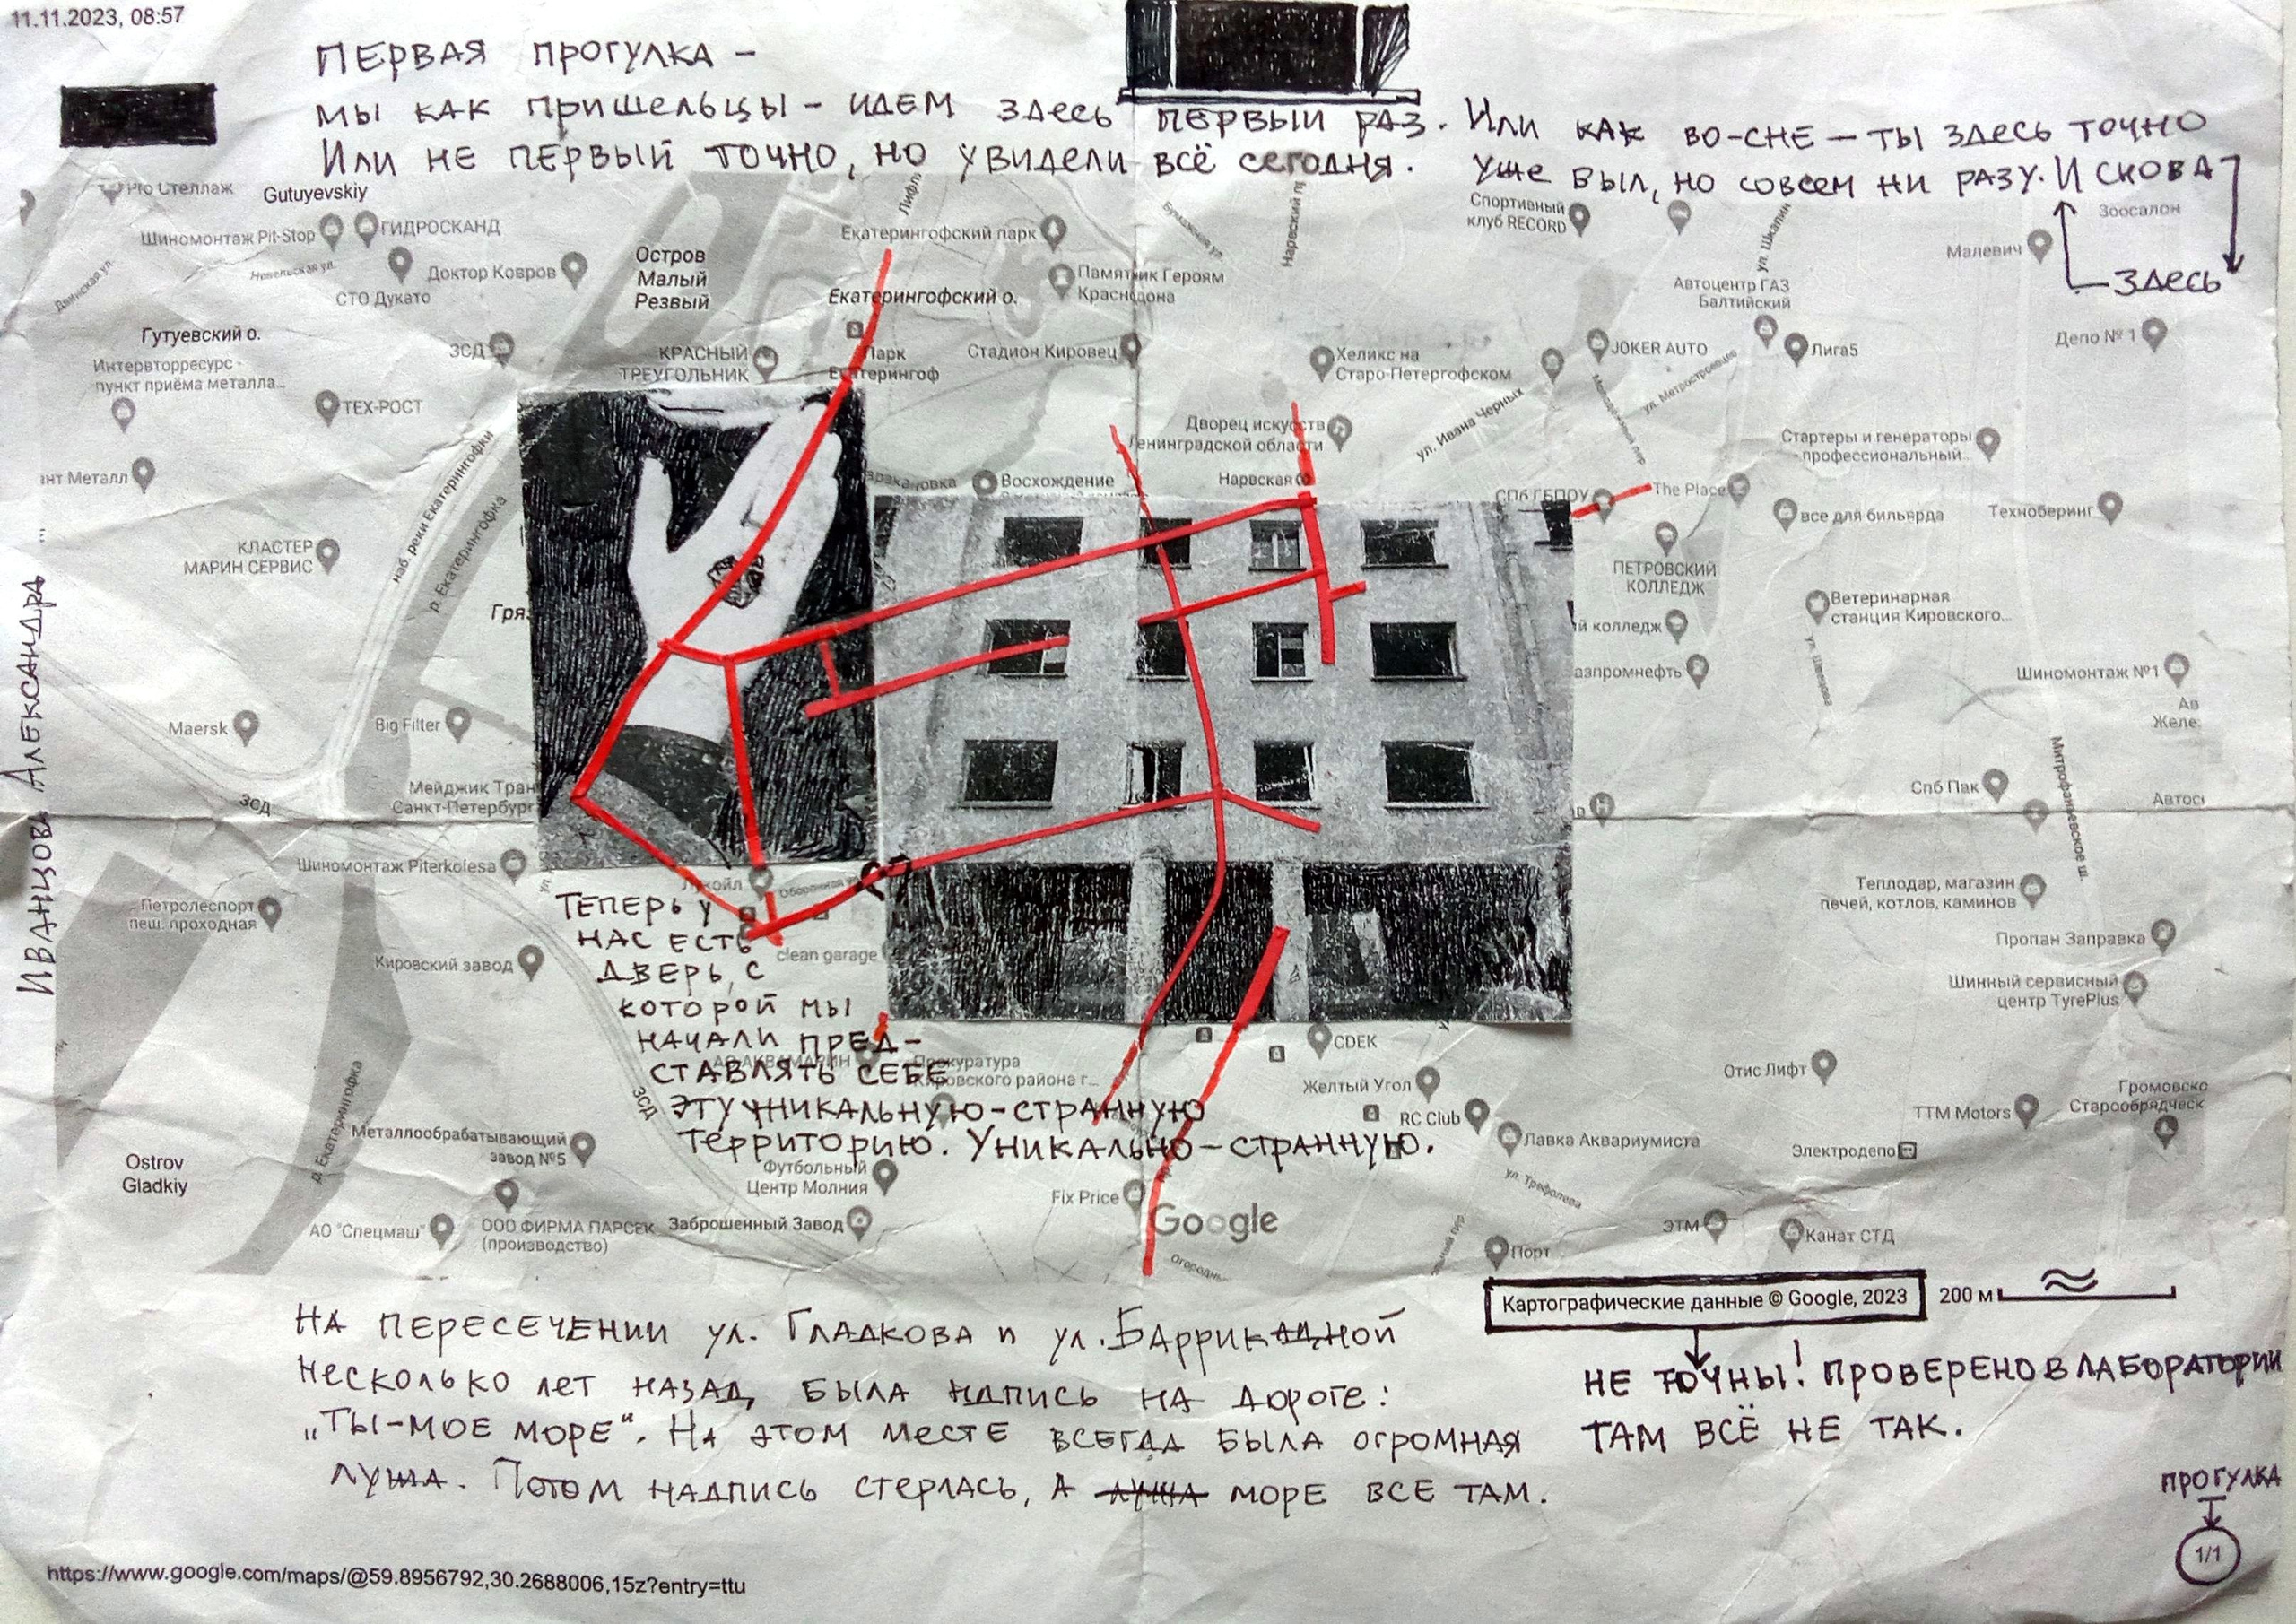 11.11.2023, 08:57
ПЕРВАЯ ПРОГУЛКА –
МЫ КАК ПРИШЕЛЬЦЫ – ИДЕМ ЗДЕСЬ ПЕРВЫЙ РАЗ. ИЛИ КАК ВО-СНЕ – ТЫ ЗДЕСЬ ТОЧНО
ИЛИ НЕ ПЕРВЫЙ ТОЧНО, НО УВИДЕЛИ ВСЁ СЕГОДНЯ. УЖЕ БЫЛ, НО СОВСЕМ НИ РАЗУ. И СНОВА
ЗДЕСЬ
Pro Стеллаж
Gutuyevskiy
Шиномонтаж Pit-Stop
ГИДРОСКАНД
Невельская ул.
Двинская ул.
СТО Дукато
Доктор Ковров
Остров
Малый
Резвый
Екатерингофский парк
Екатерингофский о.
Памятник Героям
Краснодона
Бумажная ул.
Нарвский п
Спортивный
клуб RECORD
ул. Шкапин
Зоосалон
Малевич
Автоцентр ГАЗ
Балтийский
Депо № 1
Гутуевский о.
Интервторресурс -
пункт приёма металла...
ЗСД
КРАСНЫЙ
ТРЕУГОЛЬНИК
Парк
Екатерингоф
Стадион Кировец
Хеликс на
Старо-Петергофском
JOKER AUTO
Лига5
ул. Метростроевцев
Молодёжный пер.
ТЕХ-РОСТ
Дворец искусств
Ленинградской области
ул. Ивана Черных
Стартеры и генераторы
- профессиональный...
нт Металл
наб. реки Екатерингофки
р. Екатерингофка
Восхождение
Нарвская
СПб ГБПОУ
The Place
все для бильярда
Техноберинг
КЛАСТЕР
МАРИН СЕРВИС
ПЕТРОВСКИЙ
КОЛЛЕДЖ
Гря
Ветеринарная
станция Кировского...
й колледж
азпромнефть
ул. Швецова
Шиномонтаж №1
Ав
Желе
Maersk
Big Filter
Мейджик Тран
Санкт-Петербург
ЗСД
Спб Пак
Митрофаньевское ш.
Автос
ИВАНЦОВА АЛЕКСАНДРА
Шиномонтаж Piterkolesa
Лукойл
Оборонная
Петролеспорт
пеш. проходная
clean garage
Теплодар, магазин
печей, котлов, каминов
Кировский завод
Пропан Заправка
Шинный сервисный
центр TyrePlus
ТЕПЕРЬ У
НАС ЕСТЬ
ДВЕРЬ, С
КОТОРОЙ МЫ
НАЧАЛИ ПРЕД-
СТАВЛЯТЬ СЕБЕ
ЭТУ УНИКАЛЬНУЮ-СТРАННУЮ
ТЕРРИТОРИЮ. УНИКАЛЬНО-СТРАННУЮ.
АО АКВАМАРИН
Прокуратура
Кировского района г...
CDEK
Желтый Угол
RC Club
Отис Лифт
Громовско
Старообрядческ
TTM Motors
Лавка Аквариумиста
Электродепо
ЗСД
р. Екатерингофка
Металлообрабатывающий
завод №5
Ostrov
Gladkiy
Футбольный
Центр Молния
Fix Price
ул. Трефолева
АО "Спецмаш"
ООО ФИРМА ПАРСЕК
(производство)
Заброшенный Завод
Google
Огородны
ЭТМ
Канат СТД
Порт
Картографические данные © Google, 2023
200 м
НЕ ТОЧНЫ! ПРОВЕРЕНО В ЛАБОРАТОРИИ
ТАМ ВСЁ НЕ ТАК.
НА ПЕРЕСЕЧЕНИИ УЛ. ГЛАДКОВА И УЛ. БАРРИКАДНОЙ
НЕСКОЛЬКО ЛЕТ НАЗАД БЫЛА НДПИСЬ НА ДОРОГЕ:
„ТЫ-МОЕ МОРЕ“. НА ЭТОМ МЕСТЕ ВСЕГДА БЫЛА ОГРОМНАЯ
ЛУЖА. ПОТОМ НАДПИСЬ СТЕРЛАСЬ, А ЛУЖА МОРЕ ВСЕ ТАМ.
ПРОГУЛКА
1/1
https://www.google.com/maps/@59.8956792,30.2688006,15z?entry=ttu